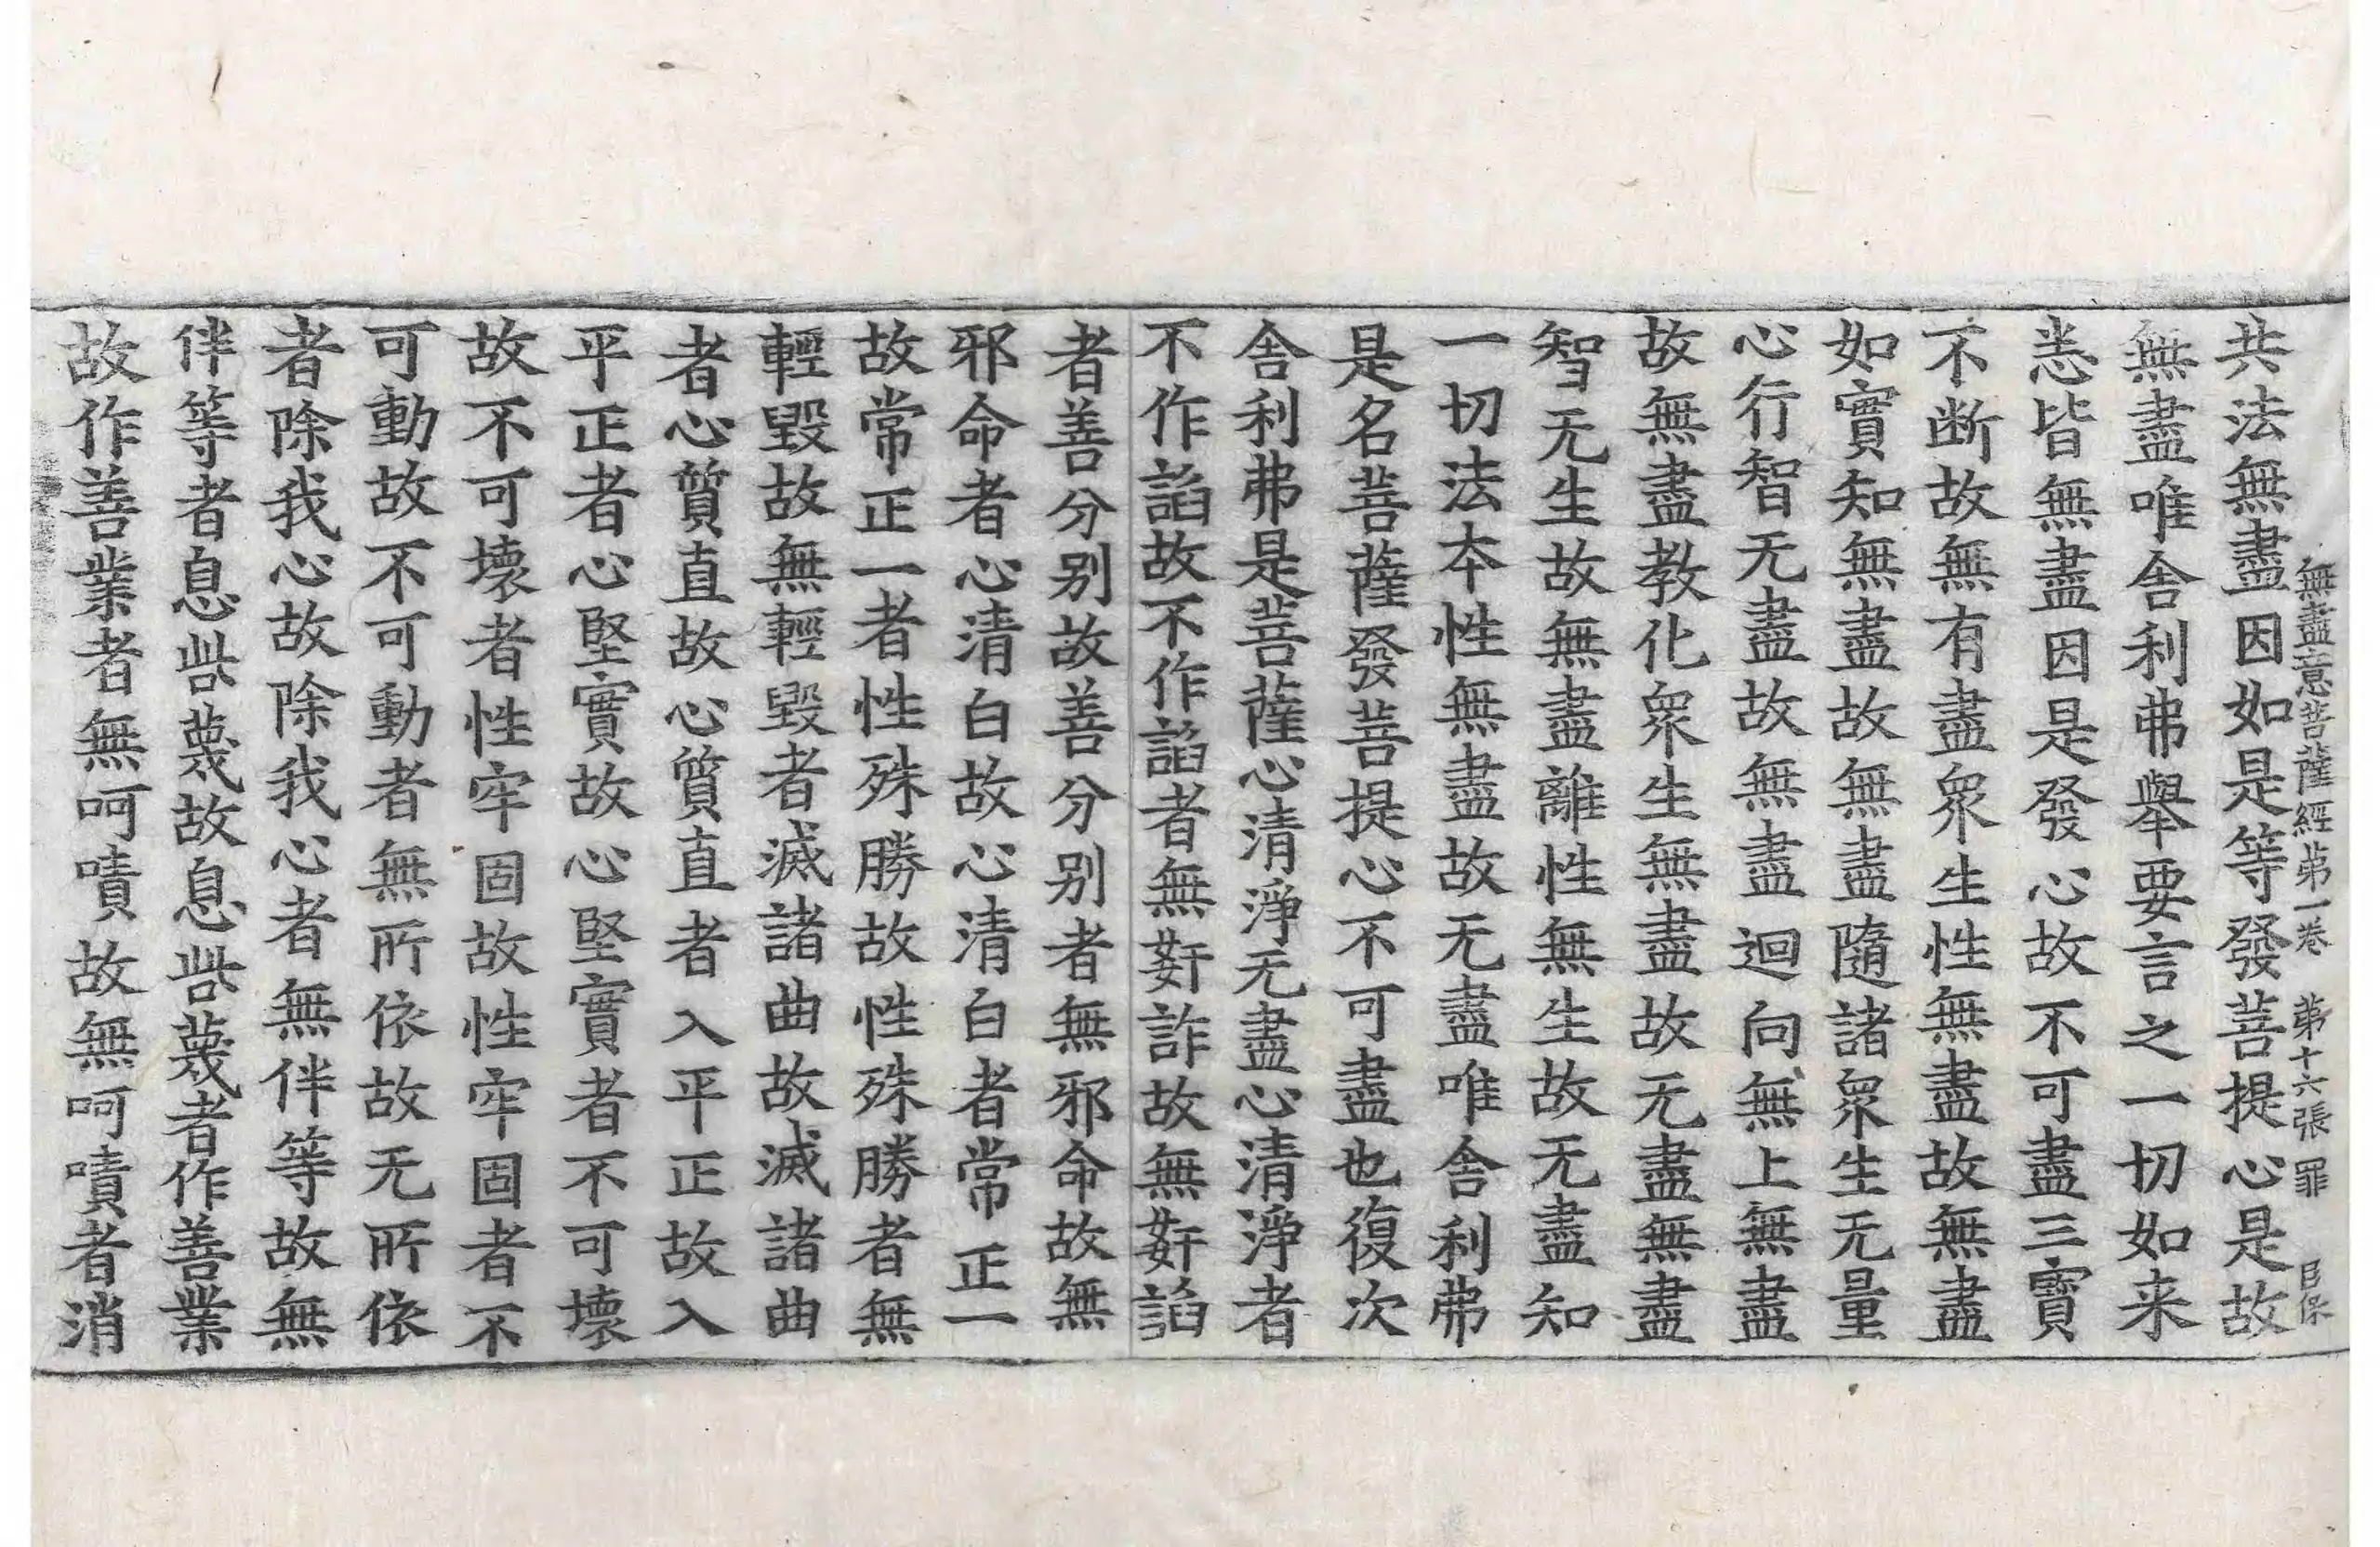 無盡意菩薩經苐一卷 苐十六張 罪 㠯保
共法無盡因如是等發菩提心是故
無盡唯舎利弗舉要言之一切如来
悉皆無盡因是發心故不可盡三寶
不断故無有盡衆生性無盡故無盡
如實知無盡故無盡隨諸衆生无量
心行智无盡故無盡迴向無上無盡
故無盡教化衆生無盡故无盡無盡
智无生故無盡離性無生故无盡知
一切法本性無盡故无盡唯舎利弗
是名菩薩發菩提心不可盡也復次
舎利弗是菩薩心清淨无盡心清淨者
不作諂故不作諂者無姧詐故無姧諂
者善分别故善分别者無邪命故無
邪命者心清白故心清白者常正一
故常正一者性殊勝故性殊勝者無
輕毀故無輕毀者滅諸曲故滅諸曲
者心質直故心質直者入平正故入
平正者心堅實故心堅實者不可壞
故不可壞者性牢固故性牢固者不
可動故不可動者無所依故无所依
者除我心故除我心者無伴等故無
伴等者息呰蔑故息呰蔑者作善業
故作善業者無呵嘖故無呵嘖者消